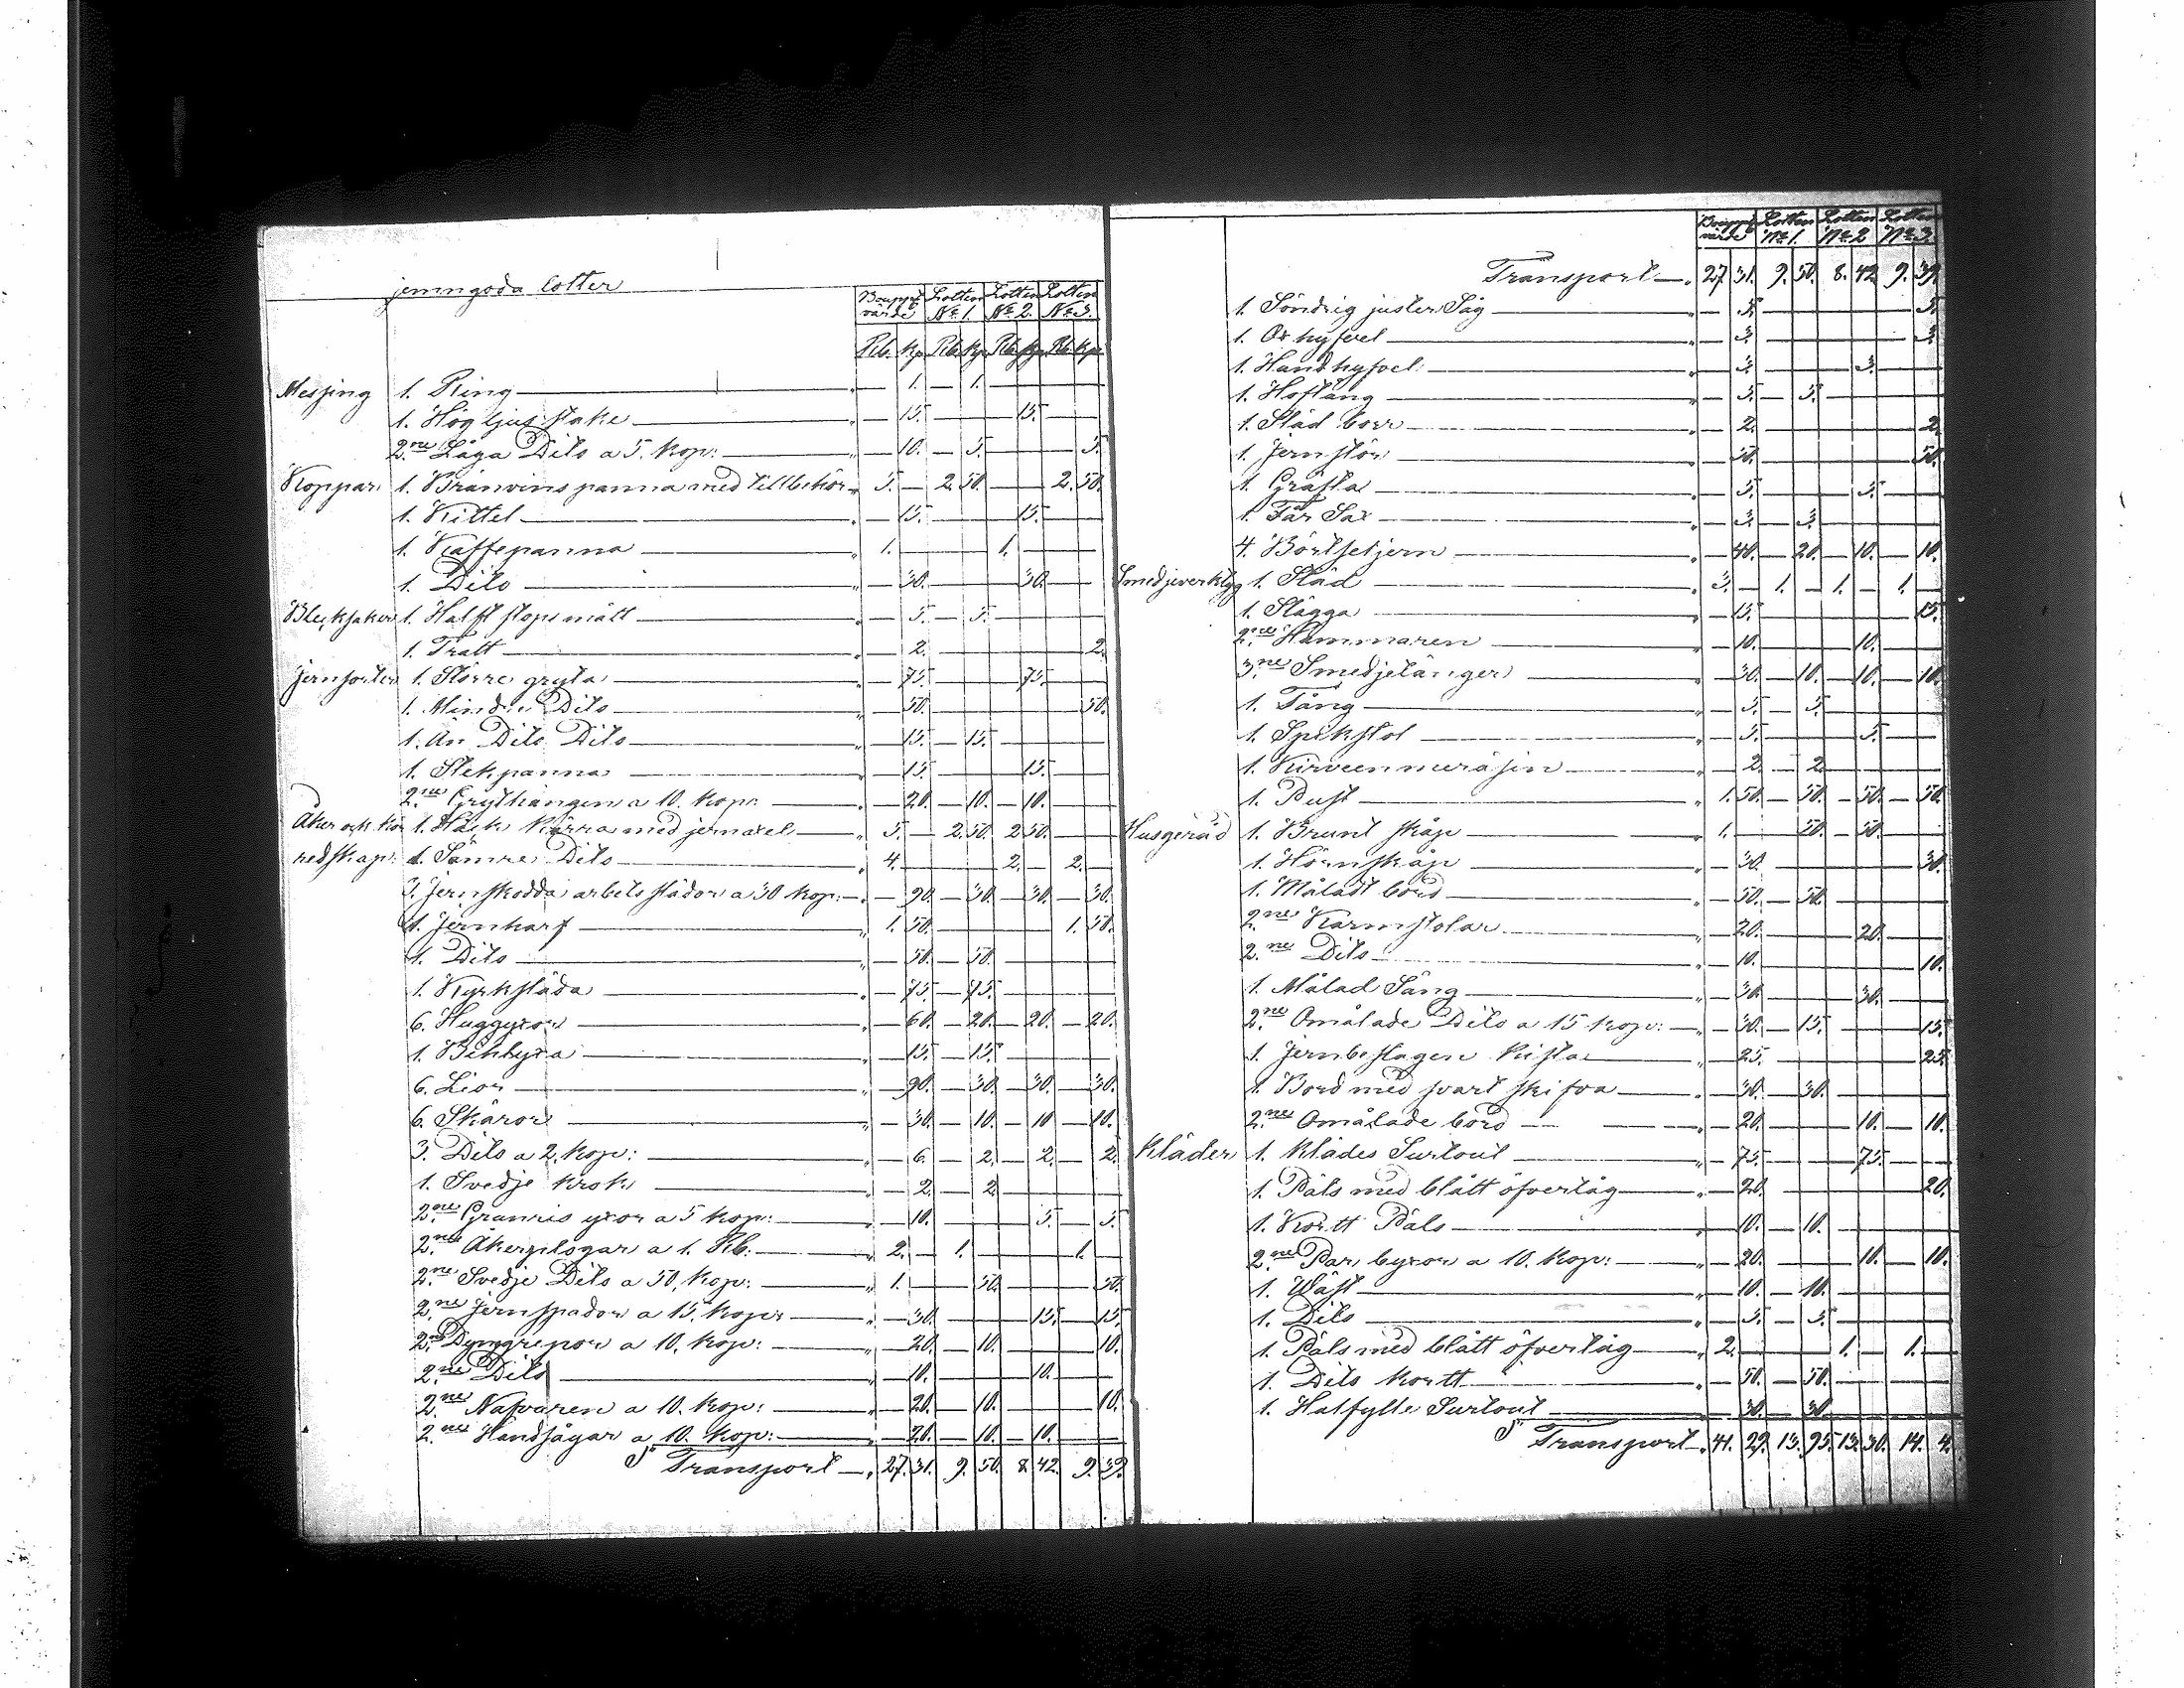 jemngoda lotter
Boupptvärde Lotten No 1. Lotten No 2. Lotten No 3.
Rb. Kp. Rb. Kp. Rb. Kp. Rb. Kp.
Messing 1. Ring — 1. — 1.
1. Hög ljusstake — 15. 15.
2.ne Låga Dito a 5. Kop: — 10. — 5. 5.
Koppar 1. Bränvins panna med tillbehör 5. — 2. 50. 2. 50.
1. Kittel — 15. 15.
1. Kaffepanna 1. 1.
1. Dito — 30. 30.
Blecksaker 1. Halft stops mått — 5. — 5.
1. Tratt — 2. 2.
Jernsorter 1. Större gryta — 75. 75.
1. Mindre Dito — 50. 50.
1. Än Dito Dito — 15. — 15.
1. Stekpanna — 15. 15.
2.ne Grythängen a 10. Kop: — 20. — 10. — 10.
Åker och kör 1. Häck Kärra med jernaxel 5. — 2. 50. 2. 50.
redskap: 1. Sämre Dito 4. 2. — 2.
3. Jernskodda arbets slädor a 30 Kop: — 90. — 30. — 30. — 30.
1. Jernharf 1. 50. 1. 50.
1. Dito — 50. — 50.
1. Kyrksläda — 75. — 75.
6. Huggyxor — 60. — 20. — 20. — 20.
1. Bihlyxa — 15. — 15.
6. Lior — 90. — 30. — 30. — 30.
6. Skäror — 30. — 10. — 10 — 10.
3. Dito a 2. Kop: — 6. — 2. — 2. — 2.
1. Svedje krok — 2. — 2.
2.ne Granris yxor a 5 Kop: — 10. 5. — 5.
2.ne Åkerplogar a 1. Rb. 2. — 1. 1.
2.ne Svedje Dito a 50. Kop: 1. 50. 50.
2.ne Jernspador a 15. Kop: — 30. 15. 15.
2.ne Dyngrepor a 10. Kop: — 20. — 10. 10.
2.ne Dito — 10. 10.
2.ne Nafvaren a 10. Kop: — 20. — 10. 10.
2.ne Handsågar a 10. Kop: — 20. — 10. — 10.
Transport 27. 31. 9. 50. 8. 42. 9. 39.
Boupptvärde Lotten No 1. Lotten No 2 Lotten No 3.
Transport 27. 31. 9. 50. 8. 42. 9. 39.
1. Söndrig juster Såg — 5. 5.
1. Ox hyfvel — 3. 3.
1. Handhyfvel — 3. 3.
1. Hoftång — 5. — 5.
1. Städ borr — 2. 2.
1. Jernstör — 50. 50.
1. Gräfta — 5. 5.
1. Får Sax — 3. — 3.
4. — 40. — 20. — 10. — 10.
Smedjeverktyg 1. Städ 3. — 1. — 1. — 1. —
1. Slägga — 15. 15.
2.ne Hammaren — 10. 10.
3.ne Smedjetänger — 30. — 10. — 10. — 10.
1. Tång — 5. — 5.
1. Spikstol — 5. 5.
1. — 2. — 2.
1. Pust 1. 50. — 50. — 50. — 50.
Husgeråd 1. Brunt skåp 1. 50. — 50.
1. Hörnskåp — 30. 30.
1. Måladt bord — 50. — 50.
2.ne Karmstolar — 20. 20.
2.ne Dito — 10. 10.
1. Målad Säng — 30. 30.
2.ne Omålade Dito a 15 Kop: — 30. — 15. 15.
1. Jernbeslagen kista — 25. 25.
1. Bord med svart skifva — 30. — 30.
2.ne Omålade bord — 20. 10. — 10.
Kläder 1. Klädes Surtout — 75. 75.
1. Päls med blått öfvertåg — 20. 20.
1. Kortt Päls — 10. — 10.
2.ne Par byxor a 10. Kop: — 20. 10. — 10.
1. Wäst — 10. — 10.
1. Dito — 5. — 5.
1. Päls med blått öfvertåg 2. 1. 1.
1. Dito kortt — 50. — 50.
1. Halfylle Surtout — 30. — 30
Transport 41. 29. 13. 95. 13. 30. 14. 4.